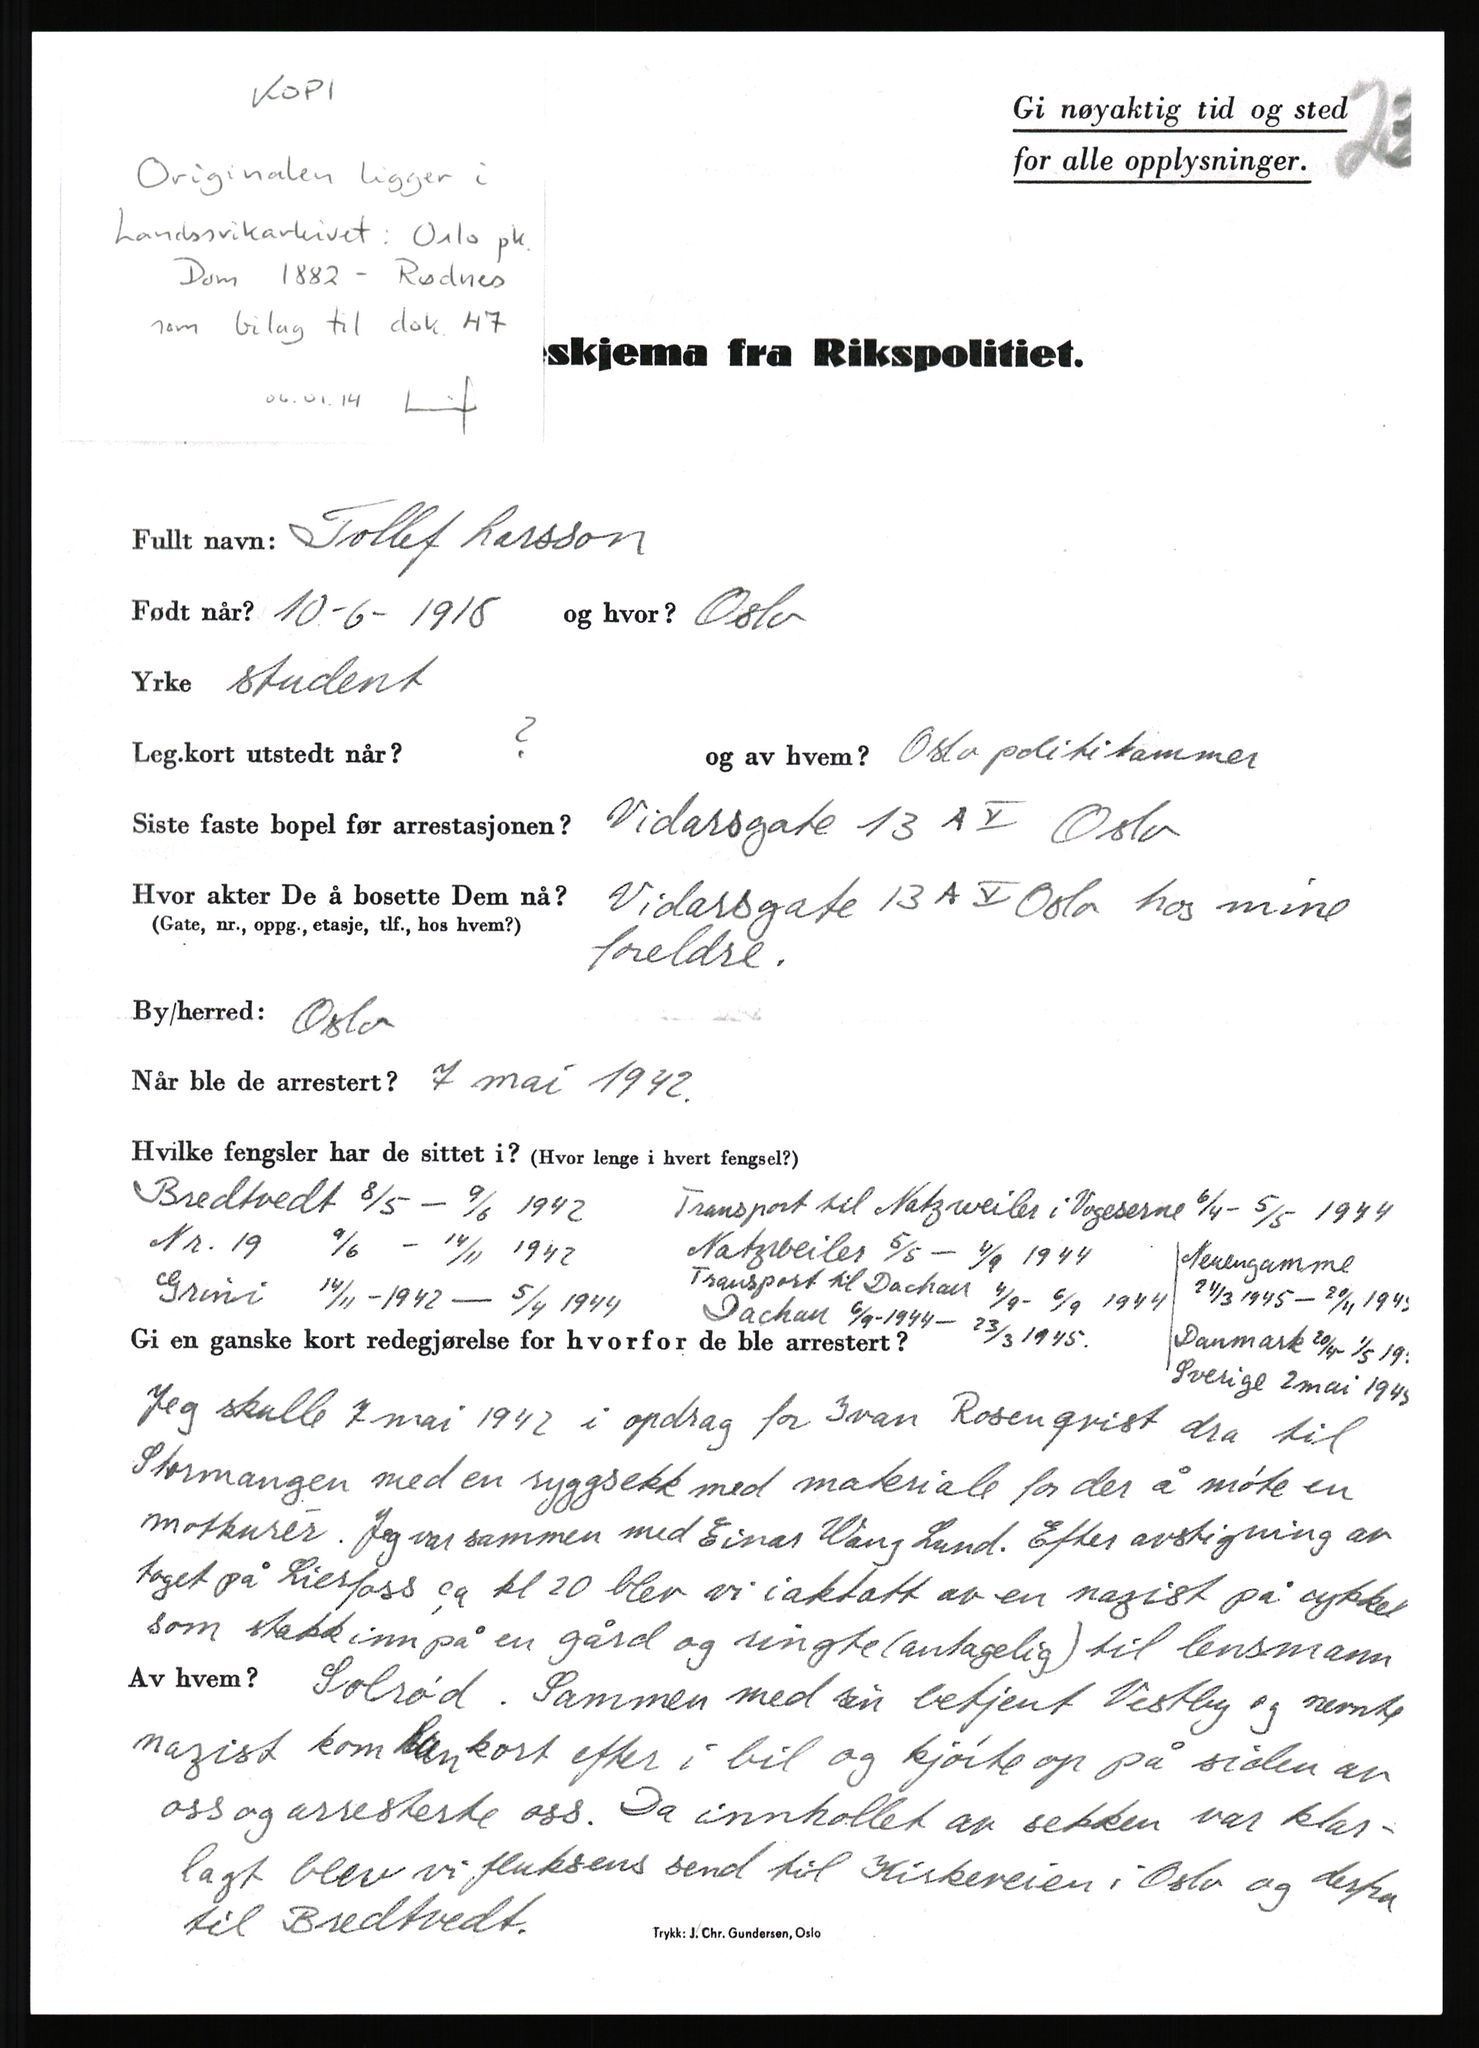 KOPI
Originalen ligger i
Landssvikarkivet: Oslo pk.
Dom 1882 - Rødnes
som bilag til dok. 47
06.01.14
Gi nøyaktig tid og sted
for alle opplysninger.
eskjema fra Rikspolitiet.
Fullt navn: Tollef Larsson
Født når? 10-6-1918 og hvor? Oslo
Yrke student
Leg.kort utstedt når? ? og av hvem? Oslo politikammer
Siste faste bopel før arrestasjonen? Vidarsgate 13 A V Oslo
Hvor akter De å bosette Dem nå? Vidarsgate 13 A V Oslo hos mine
(Gate, nr., oppg., etasje, tlf., hos hvem?) foreldre.
By/herred: Oslo
Når ble de arrestert? 7 mai 1942.
Hvilke fengsler har de sittet i? (Hvor lenge i hvert fengsel?)
Bredtvedt 8/5 — 9/6 1942
Nr. 19 9/6 - 14/11 1942
Grini 14/11 - 1942 — 5/4 1944
Transport til Natzweiler i Vogeserne 6/4 - 5/5 1944
Natzweiler 5/5 — 4/9 1944
Transport til Dachau 4/9 - 6/9 1944
Dachau 6/9 - 1944 — 23/3 1945.
Neuengamme
24/3 1945 — 20/11 194
Danmark 20/4 - 1/5 19
Sverige 2 mai 194
Gi en ganske kort redegjørelse for hvorfor de ble arrestert?
Jeg skulle 7 mai 1942 i opdrag for Ivan Rosenqvist dra til
Stormangen med en ryggsekk med materiale for der å møte en
motkurér. Jeg var sammen med Einar Wang Lund. Efter avstigning av
toget på Lierfoss ca kl 20 blev vi iaktatt av en nazist på cykkel
som stakk inn på en gård og ringte (antagelig) til lensmann
Av hvem? Solrød. Sammen med sin betjent Vestby og nevnte
nazist kom han kort efter i bil og kjørte op på siden av
oss og arresterte oss. Da innhollet av sekken var klar-
lagt blev vi fluksens send til Kirkeveien i Oslo og derfra
til Bredtvedt.
Trykk: J. Chr. Gundersen, Oslo